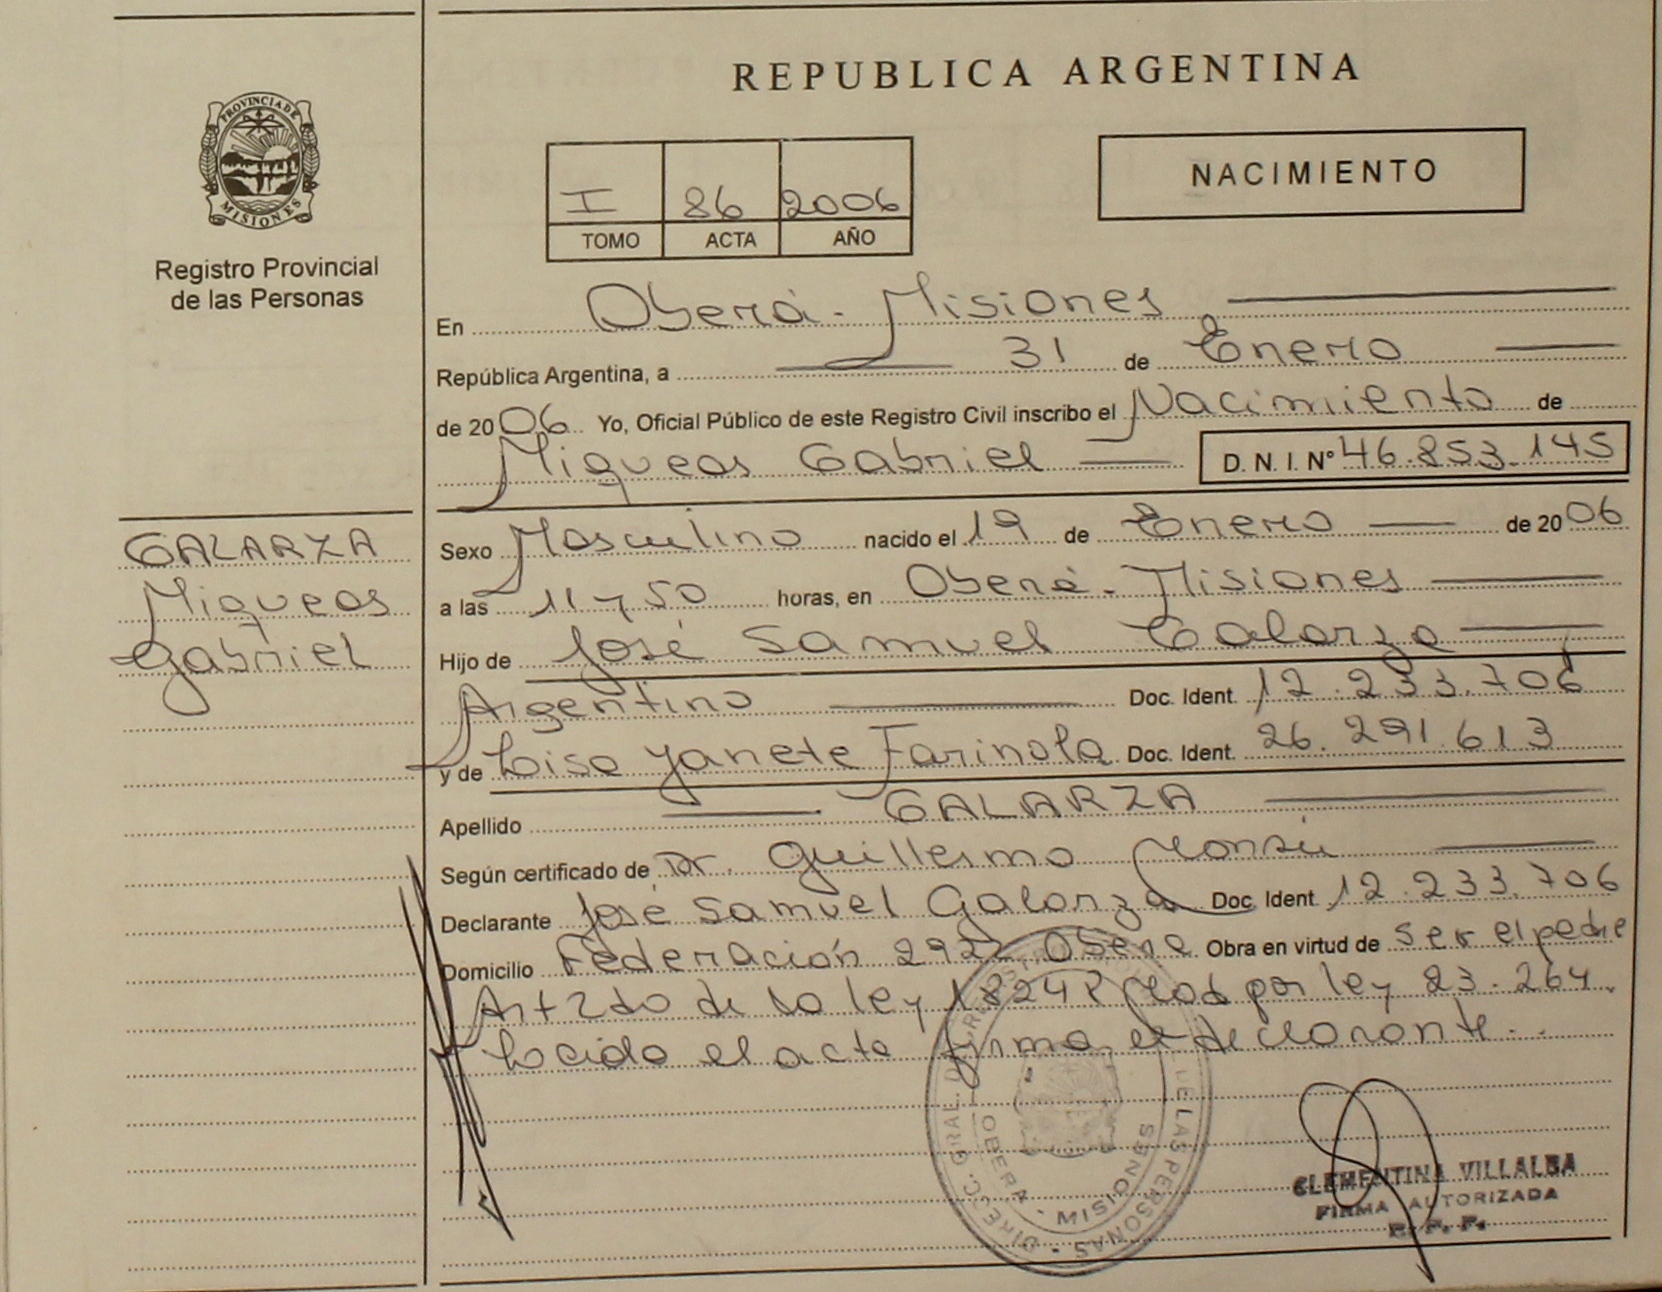 REPUBLICA ARGENTINA
PROVINCIA DE
MISIONES
Registro Provincial
de las Personas
I 86 2006
TOMO ACTA AÑO
NACIMIENTO
En Oberá - Misiones
República Argentina, a 31 de Enero
de 2006 Yo, Oficial Público de este Registro Civil inscribo el Nacimiento de
Miqueas Gabriel D.N.I.Nº 46.853.145
GALARZA
Miqueas
Gabriel
Sexo Masculino nacido el 19 de Enero de 2006
a las 11 y 50 horas, en Oberá - Misiones
Hijo de José Samuel Galarza
Argentino Doc. Ident. 12.233.706
y de Lisa Yanete Farinola Doc. Ident. 26.291.613
Apellido GALARZA
Según certificado de Dr. Guillermo
Declarante José Samuel Galarza Doc. Ident 12.233.706
Domicilio Federación 2922 Oberá Obra en virtud de ser el padre
Art 2do de la ley 18248 por ley 23.264.
Leída el acta firma el declarante.
DIREC. GRAL. DE LAS PERSONAS
OBERA - MISIONES
CLEMENTINA VILLALBA
FIRMA AUTORIZADA